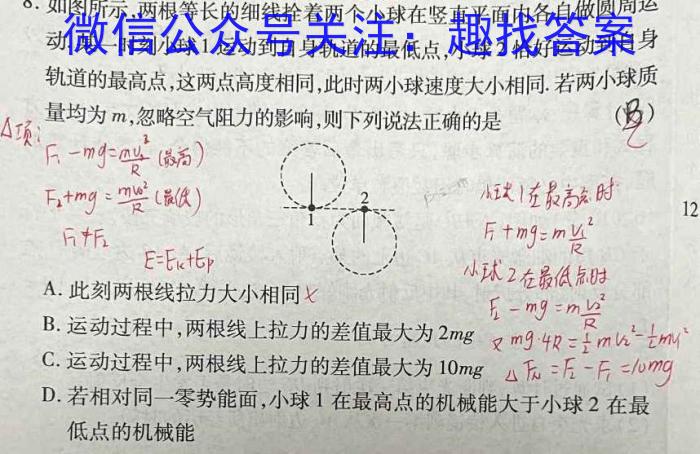 8. 如图所示,两根等长的细线拴着两个小球在竖直平面内各自做圆周运
微信公众号关注:趣找答案
轨道的最高点,这两点高度相同,此时两小球速度大小相同.若两小球质
量均为 m,忽略空气阻力的影响,则下列说法正确的是 (B)
A项:
F₁-mg=mv²/R (最高)
F₂+mg=mv²/R (最低)
F₁≠F₂
E=Eₖ+Eₚ
1
2
小球1在最高点时
F₁+mg=m v₁²/R
小球2在最低点时
F₂-mg=m v₂²/R
又mg·4R=½mv₂²-½mv₁²
△Fₘ=F₂-F₁=10mg
12
A. 此刻两根线拉力大小相同 ×
B. 运动过程中,两根线上拉力的差值最大为 2mg
C. 运动过程中,两根线上拉力的差值最大为 10mg
D. 若相对同一零势能面,小球 1 在最高点的机械能大于小球 2 在最
低点的机械能